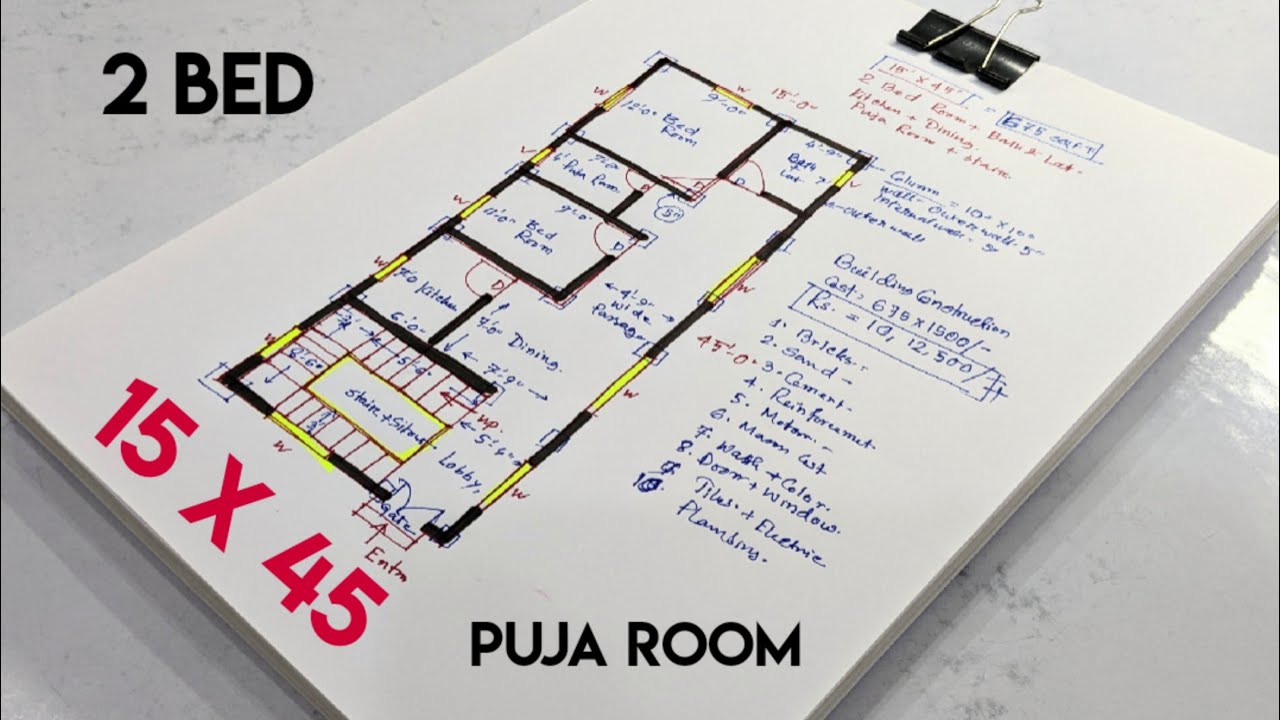 2 BED
15' X 45'
= 675 SQFT
2 Bed Room + Bath & Lat.
Kitchen + Dining.
Puja Room + Stairs
Column = 10" X 10"
wall - Outer wall - 5"
Internal wall - 5"
← outer wall
Building Construction
Cost, 675 X 1500/-
Rs. = 10,12,500/-
1. Bricks.
2. Sand -
3. Cement.
4. Reinforcemet
5.
6.
7. Wash + Color.
8. Door + Window.
9. Tiles + Electric
10. Plambing.
15'-0"
45'-0"
W
9'-0"
12'-0"
Bed
Room
4'-9"
Bath
Lat.
7'-0"
Puja Room
D
W
11'-0"
9'-0"
Bed
Room
D
W
7'-0"
Kitchen
6'-0"
D
7'-0"
Dining.
← 7'-9" →
← 4'-9" →
wide
Passage
up.
5'-6"
Lobby,
Gate
Entry
W
15 X 45
PUJA ROOM